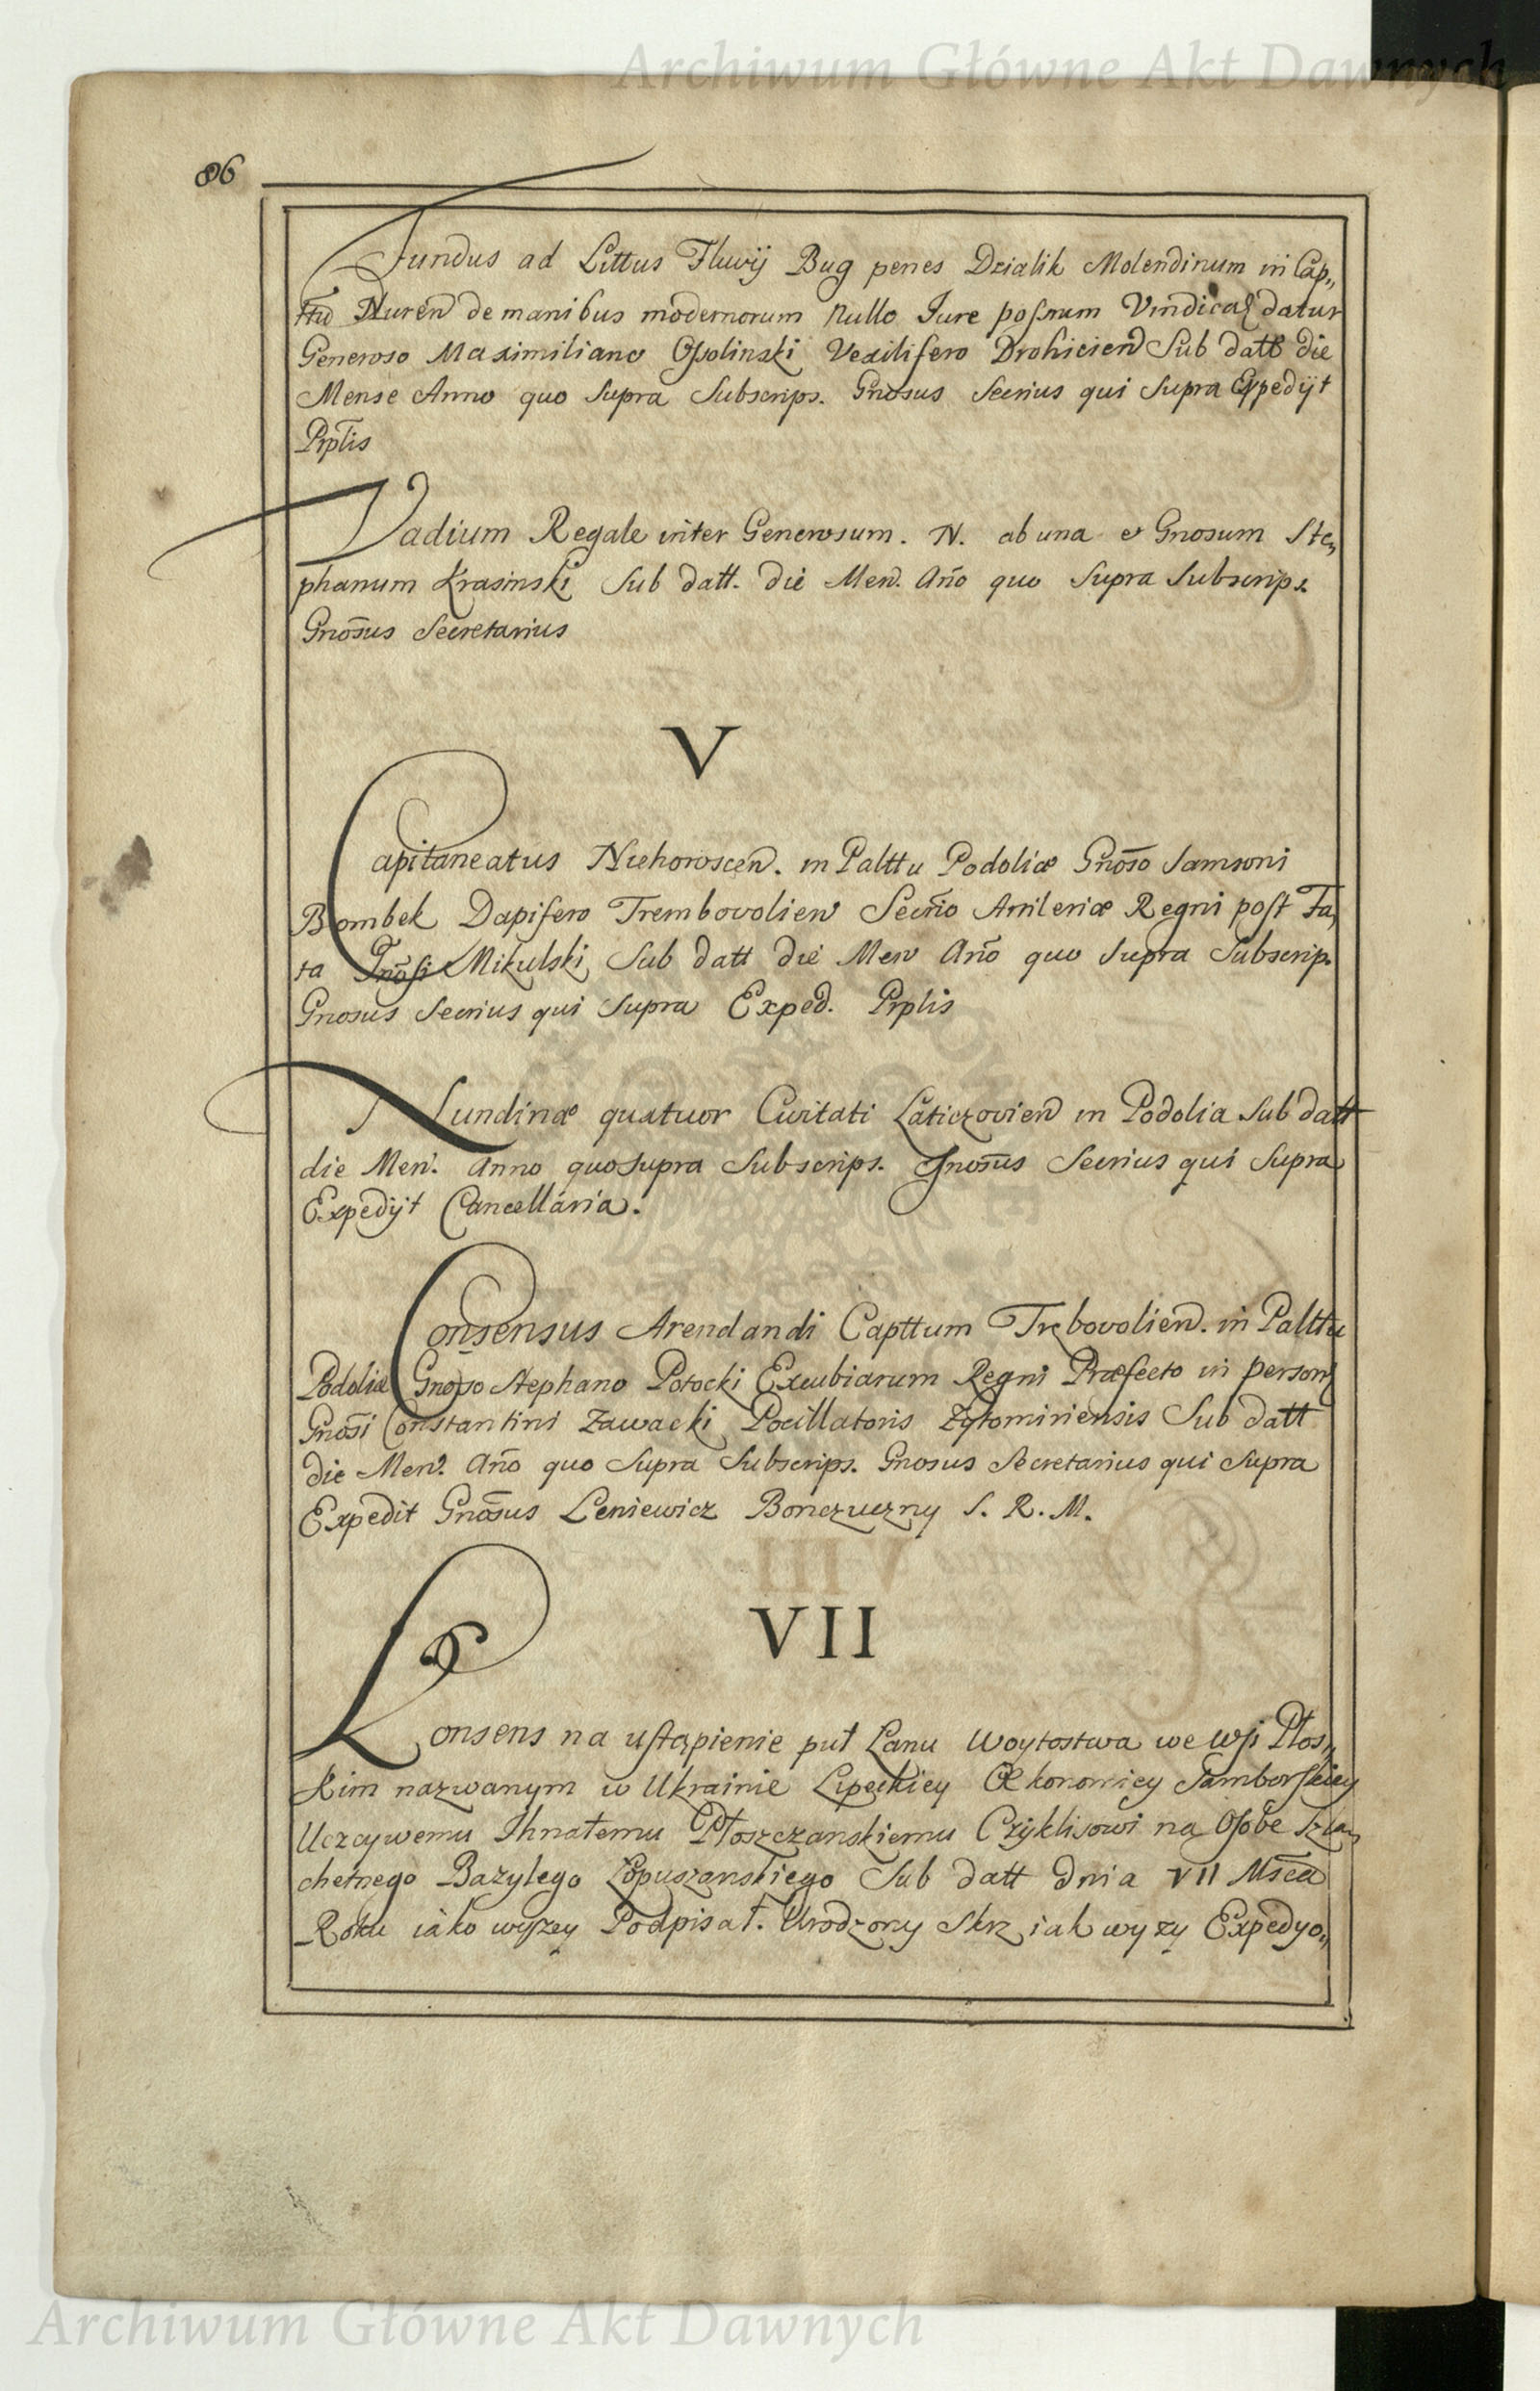 Archiwum Główne Akt Dawnych
86
Fundus ad Littus Fluvij Bug penes Dzialik Molendinum in Cap„
ttu Nuren̄ de manibus modernorum nullo Jure poſsum Vindical datur
Generoso Maximiliano Oſsolinski Vexilifero Drohicien̄ Sub datt die
Mense Anno quo Supra Subscrips. Gnosus Secrius qui Supra Expedijt
Prp̄lis
Vadium Regale inter Generosum. N. ab una et Gnosum Ste„
phanum Krasinski Sub datt. die Men̄. An̄o quo Supra Subscrips.
Gnōsus Secretarius
V
Capitaneatus Niehoroscen̄. in Palttu Podoliæ Gnōso Samsoni
Bombek Dapifero Trembovolien̄ Secrīo Arrileriæ Regni poſt Fa„
ta Gnōsi Mikulski Sub datt die Men̄ An̄o quo Supra Subscrip.
Gnosus Secrius qui Supra Exped. Prplis
Nundinæ quatuor Civitati Laticzovien̄ in Podolia Sub datt
die Men̄. Anno quo Supra Subscrips. Gnosūs Secrius qui Supra
Expedijt Cancellaria.
Consensus Arendandi Capttum Trębovolien̄. in Palttu
Podoliæ Gnoso Stephano Potocki Excubiarum Regni Præfecto in person̄
Gnōsi Constantini Zawacki Pocillatoris Zytomiriensis Sub datt
die Men̄. An̄o quo Supra Subscrips. Gnosus Secretarius qui Supra
Expedit Gnōsus Leniewicz Bonczuczny S. R. M.
VII
Konsens na uſtąpienie puł Łanu Woytostwa we Wſi Płos„
kim nazwanym w Ukrainie Lipeckiey Œkonomicy Samborſkiey
Uczcywemu Ihnatemu Płoszczanskiemu Czyklisowi na Oſobe Szla„
chetnego Bazylego Łopuszanskiego Sub datt dnia VII Msc̄a
Roku iako wyszey Podpisał. Urodzony Skrz iak wyzy Expedyo„
Archiwum Główne Akt Dawnych